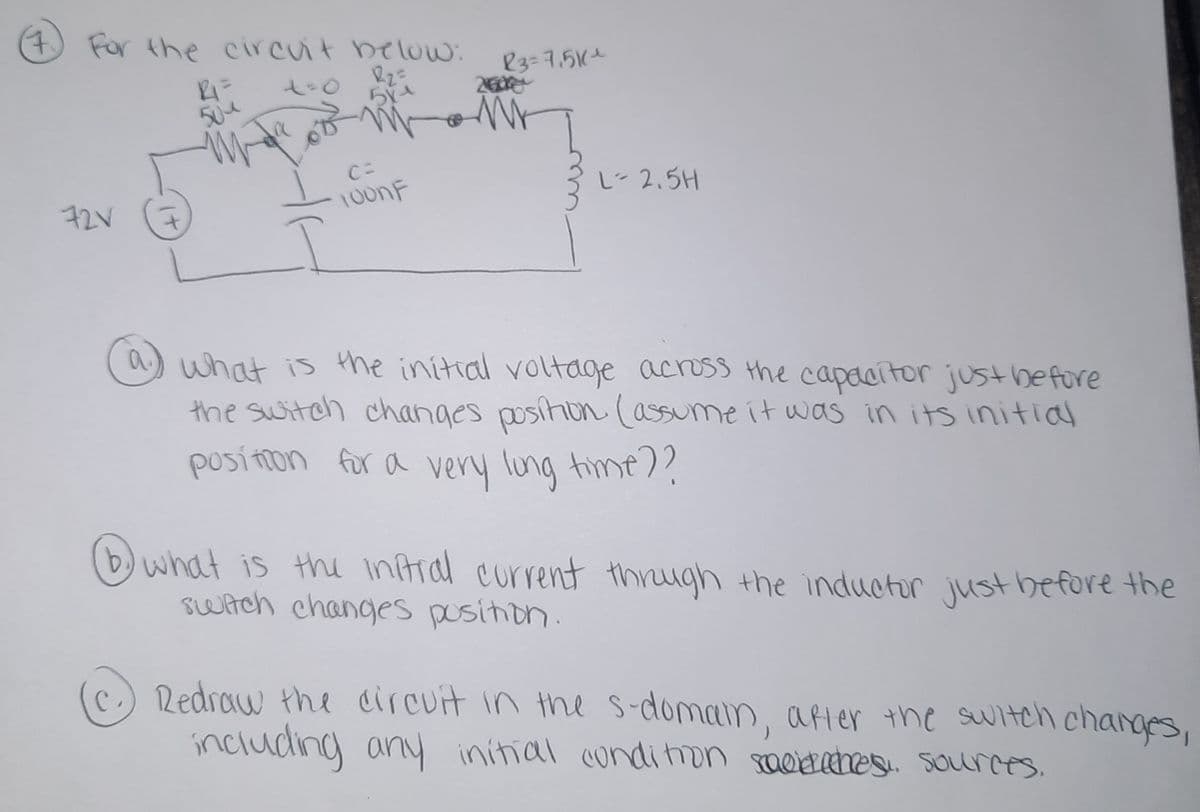 7. For the circuit below:
R3=7.5K
R1= t=0 R2=
50 5K
a b
C=
100nF
L= 2.5H
72V
- +
a.) what is the initial voltage across the capacitor just before
the switch changes position (assume it was in its initial
position for a very long time)??
b.) what is the initial current through the inductor just before the
switch changes position.
c.) Redraw the circuit in the s-domain, after the switch changes,
including any initial condition sources.